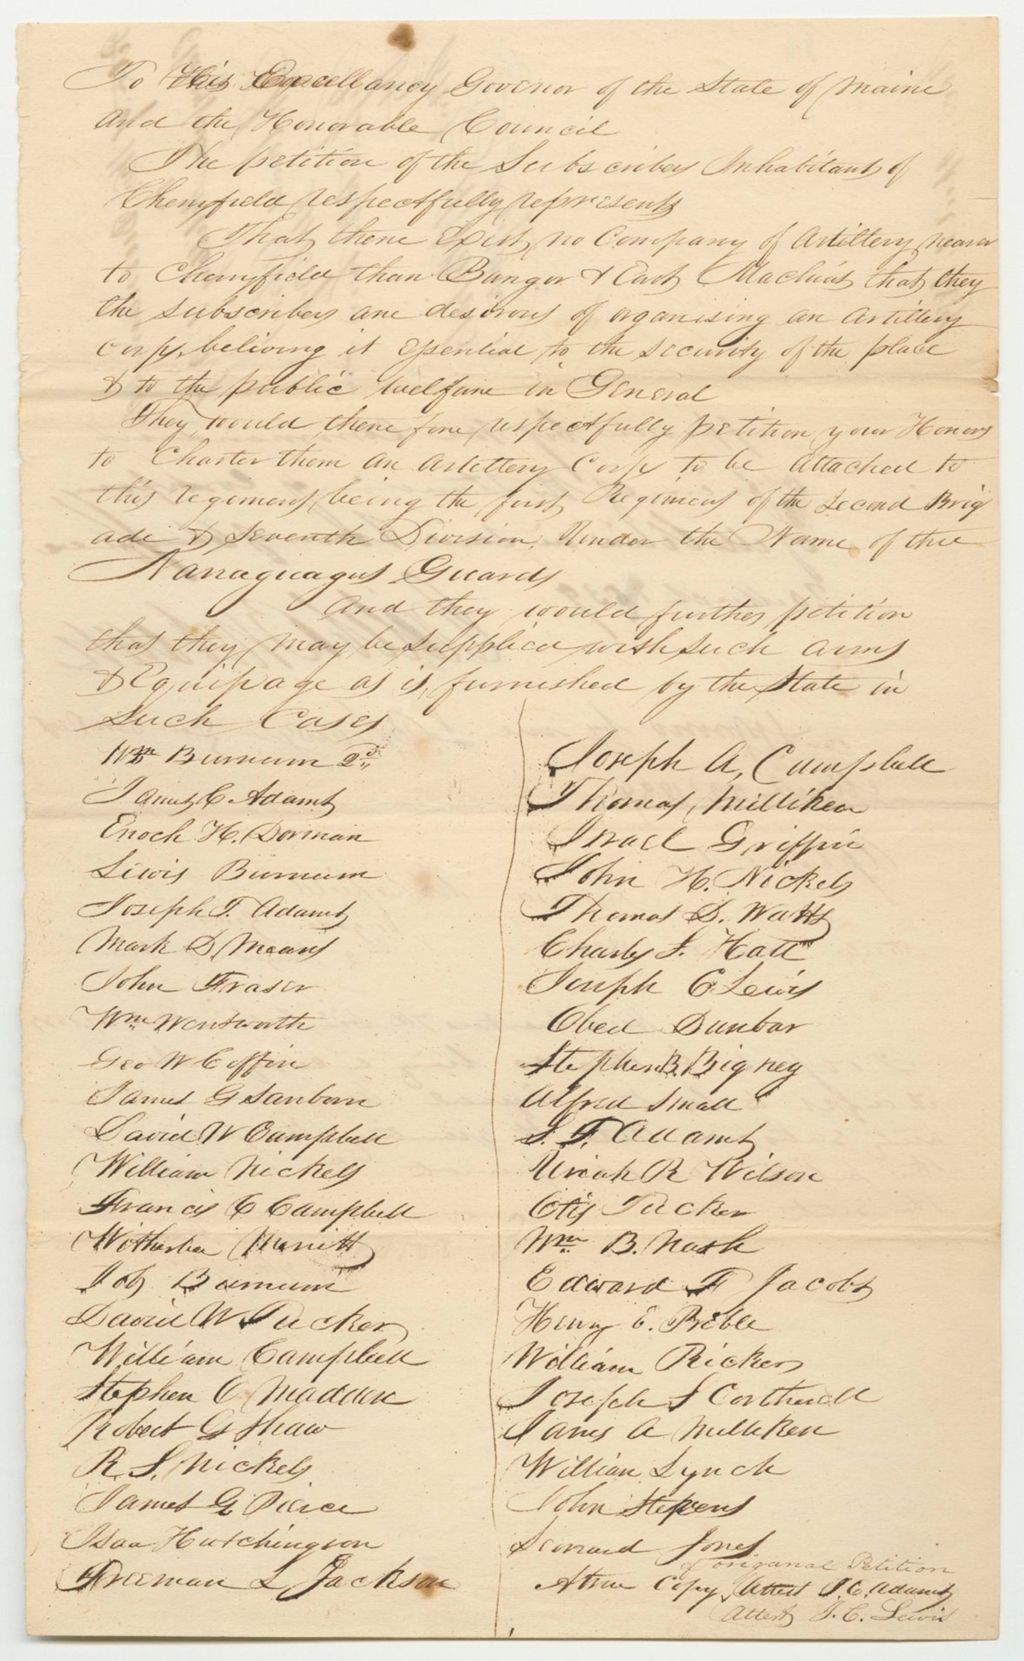 To His Excellancy Governor of the State of Maine
and the Honorable Council
The petition of the Subscribers Inhabitants of
Cherryfield respectfully represents
That there exist no Company of Artillery nearer
to Cherryfield than Bangor & East Machias that they
the subscribers are desirous of organising an Artillery
corps, beliving it essential to the security of the place
& to the public welfare in General
They would therefore respectfully petition your Honors
to Charter them an Artillery Corps to be attached to
this regiment being the first Regiment of the Second Brig
ade & Seventh Division, Under the Name of the
Narraguagus Guards
And they would further petition
that they may be supplied with such arms
& Equipage as is furnished by the State in
such Cases
Wm Burnum 2d
James C Adams
Enoch H. Dorman
Lewis Burnum
Joseph T. Adams
Mark D Means
John Fraser
Wm Wentworth
Geo W Coffin
James G Sanborn
David W Campbell
William Nickels
Francis C Campbell
Merritt
Job Burnum
David W Tucker
William Campbell
Stephen C Madden
Robert G Shaw
R. S. Nickels
James G. Pierce
Isaa Hutchingson
Freeman L Jackson
Joseph A, Campbell
Thomas Milliken
Israel Griffin
John H. Nickels
Thomas D. Watts
Charles F. Hall
Joseph C Lewis
Obed Dunbar
Stephen B. Bigney
Alfred Small
S. F. Adams
Uriah R Wilson
Otis Tucker
Wm B. Nash
Edward F Jacobs
Henry E. Preble
William Ricker
Joseph S Corthell
James A Milliken
William Lynch
John Stevens
Leonard Jones
of origanal Petition
A true Copy Attest J. C. Adams
Attest J. C. Lewis